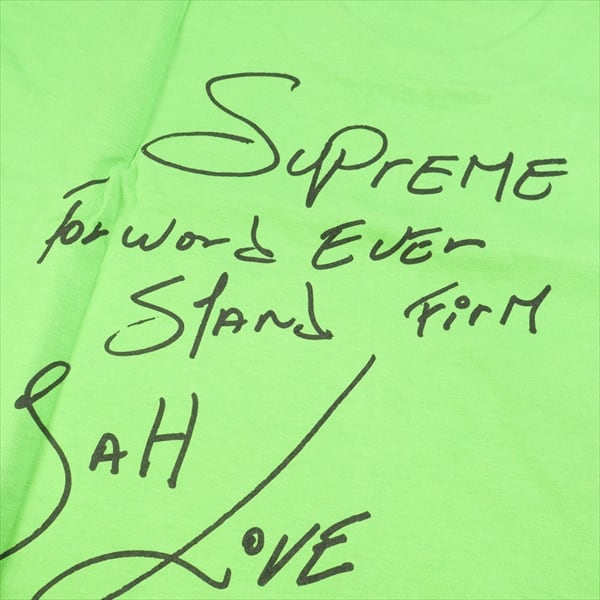 SuPrEME
ForWord EVEr
Stand Firm
JAH
LOVE